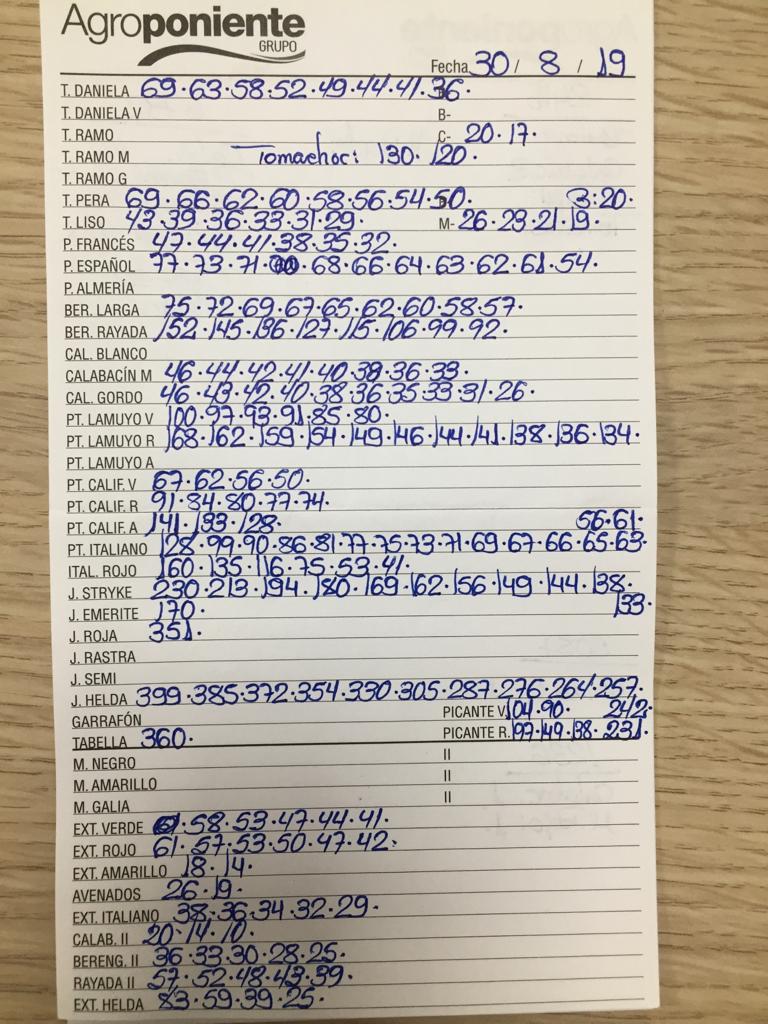 Agroponiente
GRUPO
Fecha 30 / 8 / 19
T. DANIELA 69·63·58·52·49·44·41·36·
T. DANIELA V B-
T. RAMO C- 20·17·
T. RAMO M Tomachoc: 130· 120·
T. RAMO G
T. PERA 69·66·62·60·58·56·54·50· 3:20·
T. LISO 43·39·36·33·31·29· M- 26·23·21·19·
P. FRANCÉS 47·44·41·38·35·32·
P. ESPAÑOL 77·73·71· 68·66·64·63·62·61·54·
P. ALMERÍA
BER. LARGA 75·72·69·67·65·62·60·58·57·
BER. RAYADA 152·145·136·127·115·106·99·92·
CAL. BLANCO
CALABACÍN M 46·44·42·41·40·38·36·33·
CAL. GORDO 46·43·42·40·38·36·35·33·31·26·
PT. LAMUYO V 100·97·93·91·85·80·
PT. LAMUYO R 168·162·159·154·149·146·144·141·138·136·134·
PT. LAMUYO A
PT. CALIF. V 67·62·56·50·
PT. CALIF. R 91·84·80·77·74·
PT. CALIF. A 141·133·128· 56·61·
PT. ITALIANO 128·99·90·86·81·77·75·73·71·69·67·66·65·63·
ITAL. ROJO 160·135·116·75·53·41·
J. STRYKE 230·213·194·180·169·162·156·149·144·138·
J. EMERITE 170· 133·
J. ROJA 351·
J. RASTRA
J. SEMI
J. HELDA 399·385·372·354·330·305·287·276·264·257·
GARRAFÓN PICANTE V. 104·90· 242·
TABELLA 360· PICANTE R. 197·149·138· 231·
M. NEGRO II
M. AMARILLO II
M. GALIA II
EXT. VERDE 58·53·47·44·41·
EXT. ROJO 61·57·53·50·47·42·
EXT. AMARILLO 18·14·
AVENADOS 26·19·
EXT. ITALIANO 38·36·34·32·29·
CALAB. II 20·14·10·
BERENG. II 36·33·30·28·25·
RAYADA II 57·52·48·43·39·
EXT. HELDA 83·59·39·25·